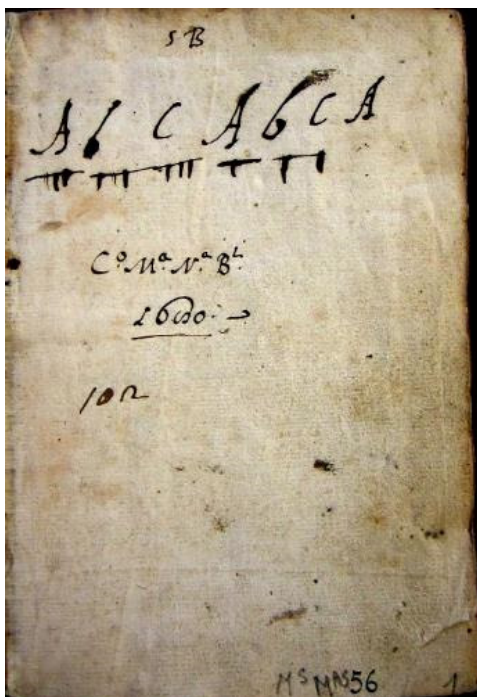 S B
A b C A b C A
C.º M.ª N.ª B.ᵗ
102
MS MAS56 1